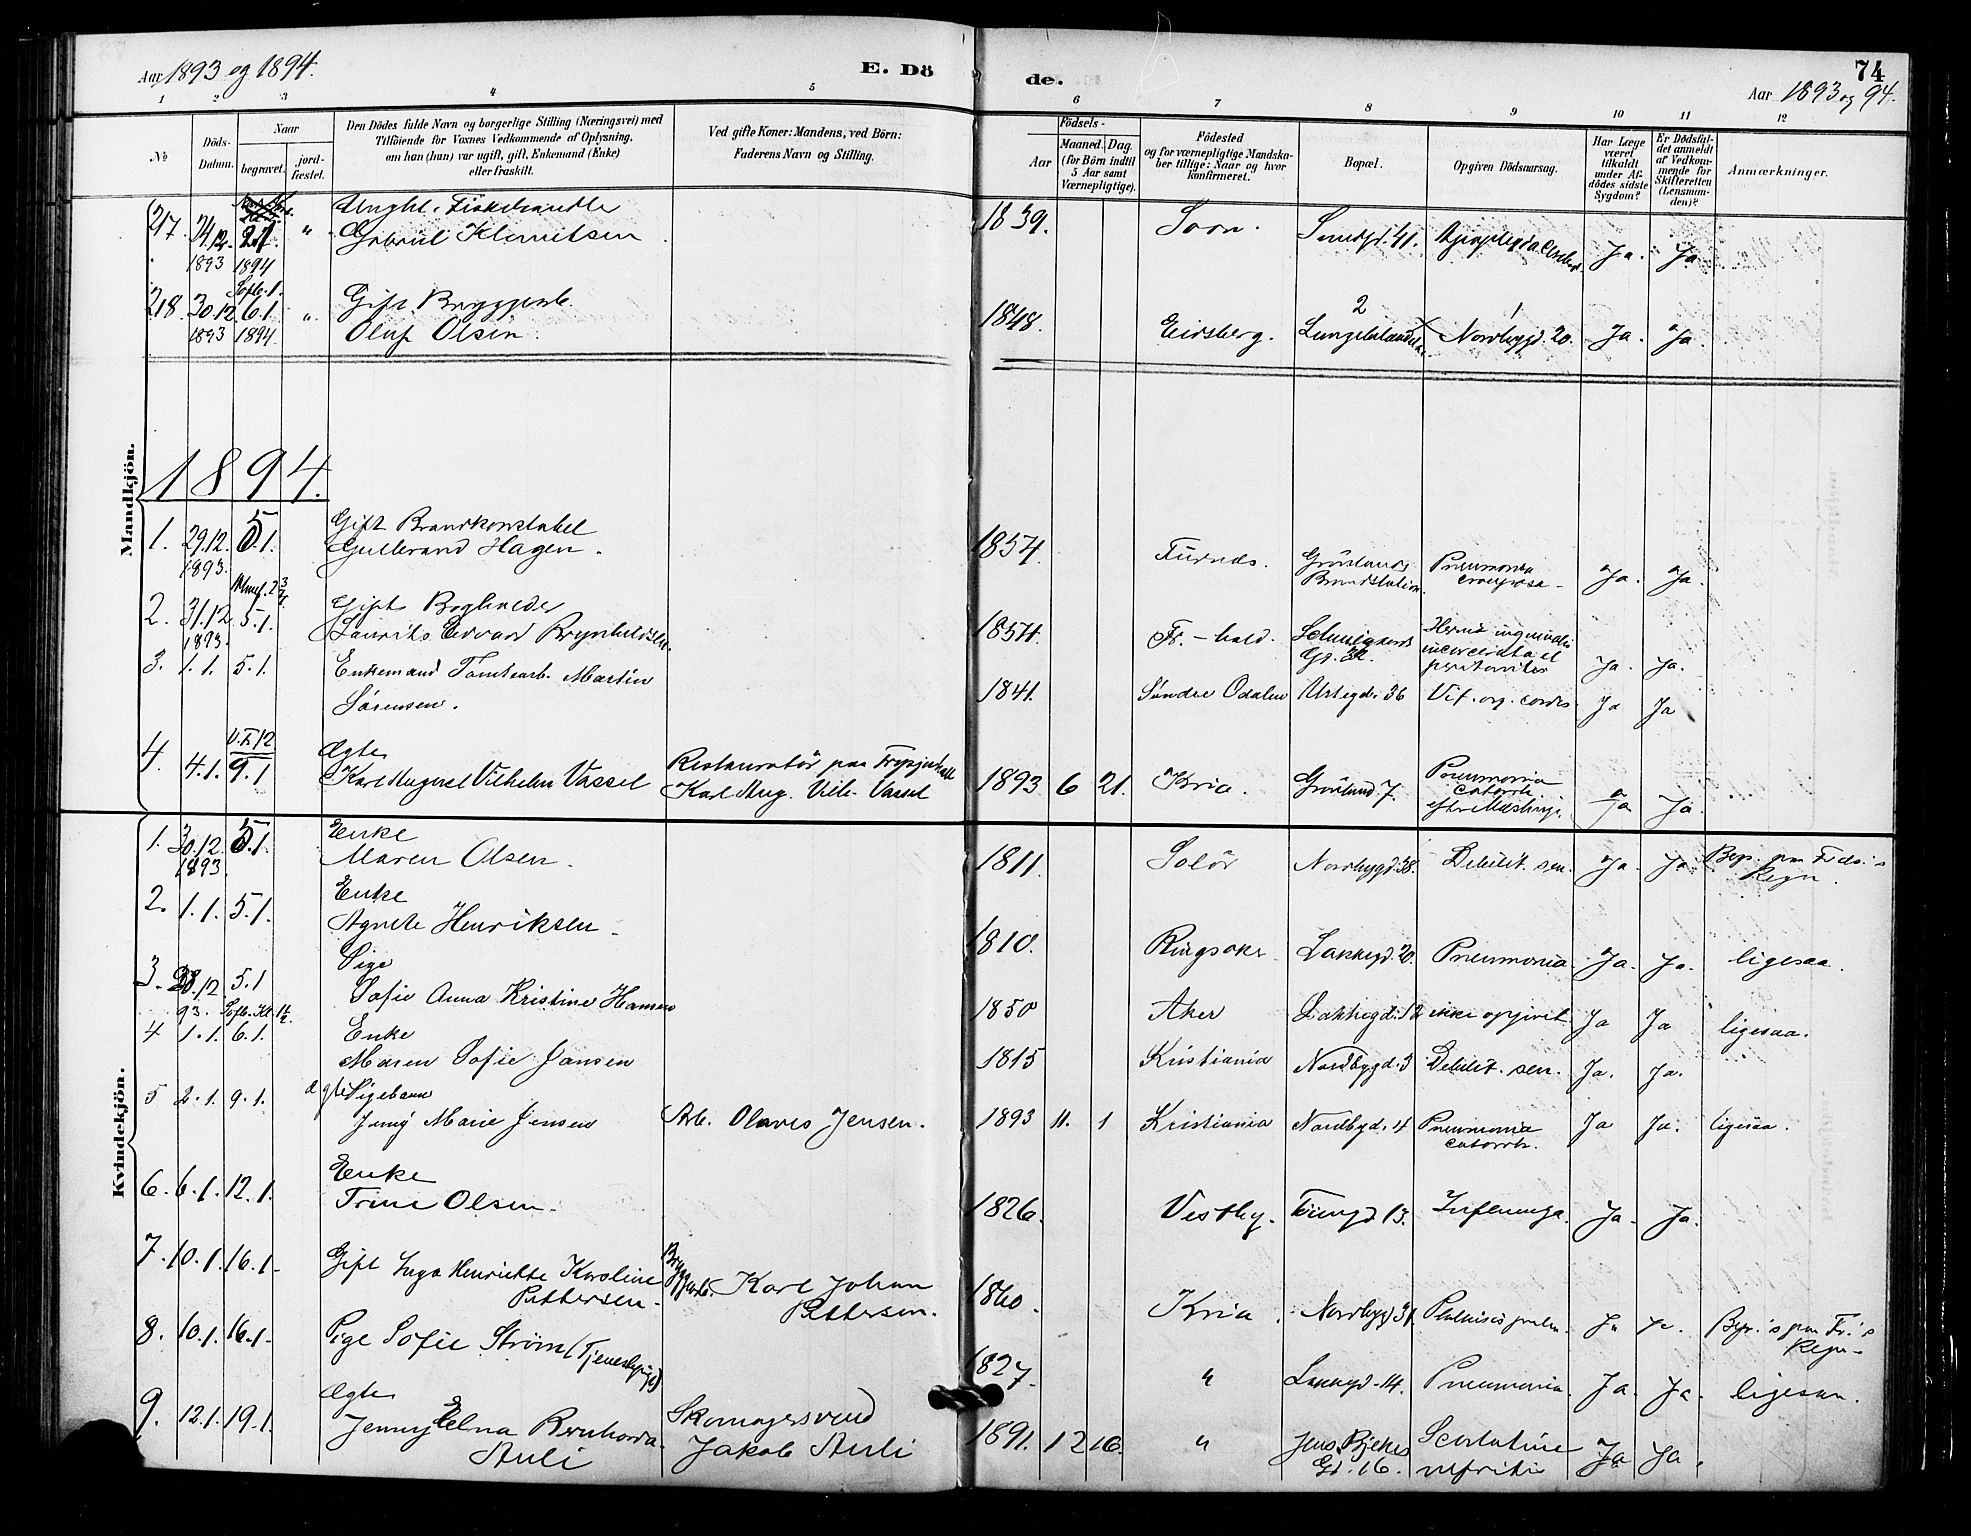 Aar 1893 og 1894.
E. Dö
de.
74
Aar 1893 og 94.
1 2 3 4 5 6 7 8 9 10 11 12
№
Döds-Datum.
Naar
begravet.
jord-fæstet.
Den Dödes fulde Navn og borgerlige Stilling (Næringsvei) med
Tilföiende for Voxnes Vedkommende af Oplysning,
om han (hun) var ugift, gift, Enkemand (Enke)
eller fraskilt.
Ved gifte Koner: Mandens, ved Börn:
Faderens Navn og Stilling.
Födsels-
Aar
Maaned. Dag.
(for Börn indtil
5 Aar samt
Værnepligtige).
Födested
og for værnepligtige Mandska-
ber tillige: Naar og hvor
konfirmeret.
Bopæl.
Opgiven Dödsaarsag.
Har Læge
været
tilkaldt
under Af-
dödes sidste
Sygdom?
Er Dödsfal-
det anmeldt
af Vedkom-
mende for
Skifteretten
(Lensman-
den)?
Anmærkninger.
Mandkjön.
217. 24/12 1893 2.1 1894 " Ungkl. Fiskehandler
Gabriel Klemetsen 1839. Soon. Smedgd. 41. Ja. Ja.
218 30.12 1893 6.1 1894 " Gift Bryggearb.
Oluf Olsen. 1848. Eidsberg. Nordbygd. 20. Ja. Ja.
1894.
1. 29.12. 1893. 5.1. Gift Brandkonstabel
Gulbrand Hagen. 1854. Furnds. Grönlands
Brandstation Pneumonia
crouposa Ja. Ja.
2. 31.12 1893. 5.1. Gift Boghandler
Laurits Edvard Brynhildsen. 1854. Fr.-hald. Schweigaards
Gd. Hernia inguinalis
incarcerata et
peritonitis Ja. Ja.
3. 1.1. 5.1. Enkemand Tomtearb. Martin
Sörensen. 1841. Söndre Odalen Urtegd. 36 Vit. org. cordis Ja Ja
4. 4.1. 9.1 Ægte
Karl August Vilhelm Vassel Restauratör paa
Karl Aug. Vilh. Vassel 1893 6 21. Kria. Grönland 7. Pneumonia
catarrh.
efter Mæslinger. Ja Ja.
Kvindekjön.
1. 30.12. 1893 5.1. Enke
Maren Olsen. 1811. Solör Nordbygd. 38. Debilit. sen. Ja. Ja. Begr. paa Fds.'s
Regn.
2. 1.1. 5.1. Enke
Agnete Henriksen. 1810. Ringsaker Lakkegd. 20. Pneumonia Ja. Ja. ligesaa.
3. 28.12 93. 5.1 Pige
Sofie Anna Kristine Hansen 1850 Aker Lakkegd. 12 ikke opgivet. Ja Ja ligesaa.
4 1.1. 6.1. Enke
Maren Sofie Jansen 1815 Kristiania Nordbygd. 3 Debilit. sen. Ja. Ja.
5 2.1. 9.1. ægte Pigebarn
Jenny Marie Jensen Arb. Olaves Jensen. 1893 11. 1 Kristiania Nordbyd. 4 Pneumonia
catarrh. Ja Ja. ligesaa.
6. 6.1. 12.1. Enke
Trine Olsen. 1826. Vestby. Tömgd 13. Influenza. Ja. Ja.
7. 10.1. 16.1. Gift Inga Henriette Karoline
Pettersen. Bryggearb. Karl Johan
Pettersen. 1860. Kria. Nordbygd 31. Phthisis pulm. Ja Ja.
8. 10.1. 16.1. Pige Sofie Strøm (Tjenestepige) 1827. " Lakkegd. 14. Pneumonia. Ja. Ja. Begr.'s paa Fr.'s
Regn.
ligesaa.
9. 12.1. 19.1. Ægte
Jenny Elna Bernharda
Auli Skomagersvend
Jakob Auli 1891. 12 16. " Jens Bjelkes
Gd. 16. Scarlatina
nefritis Ja Ja.